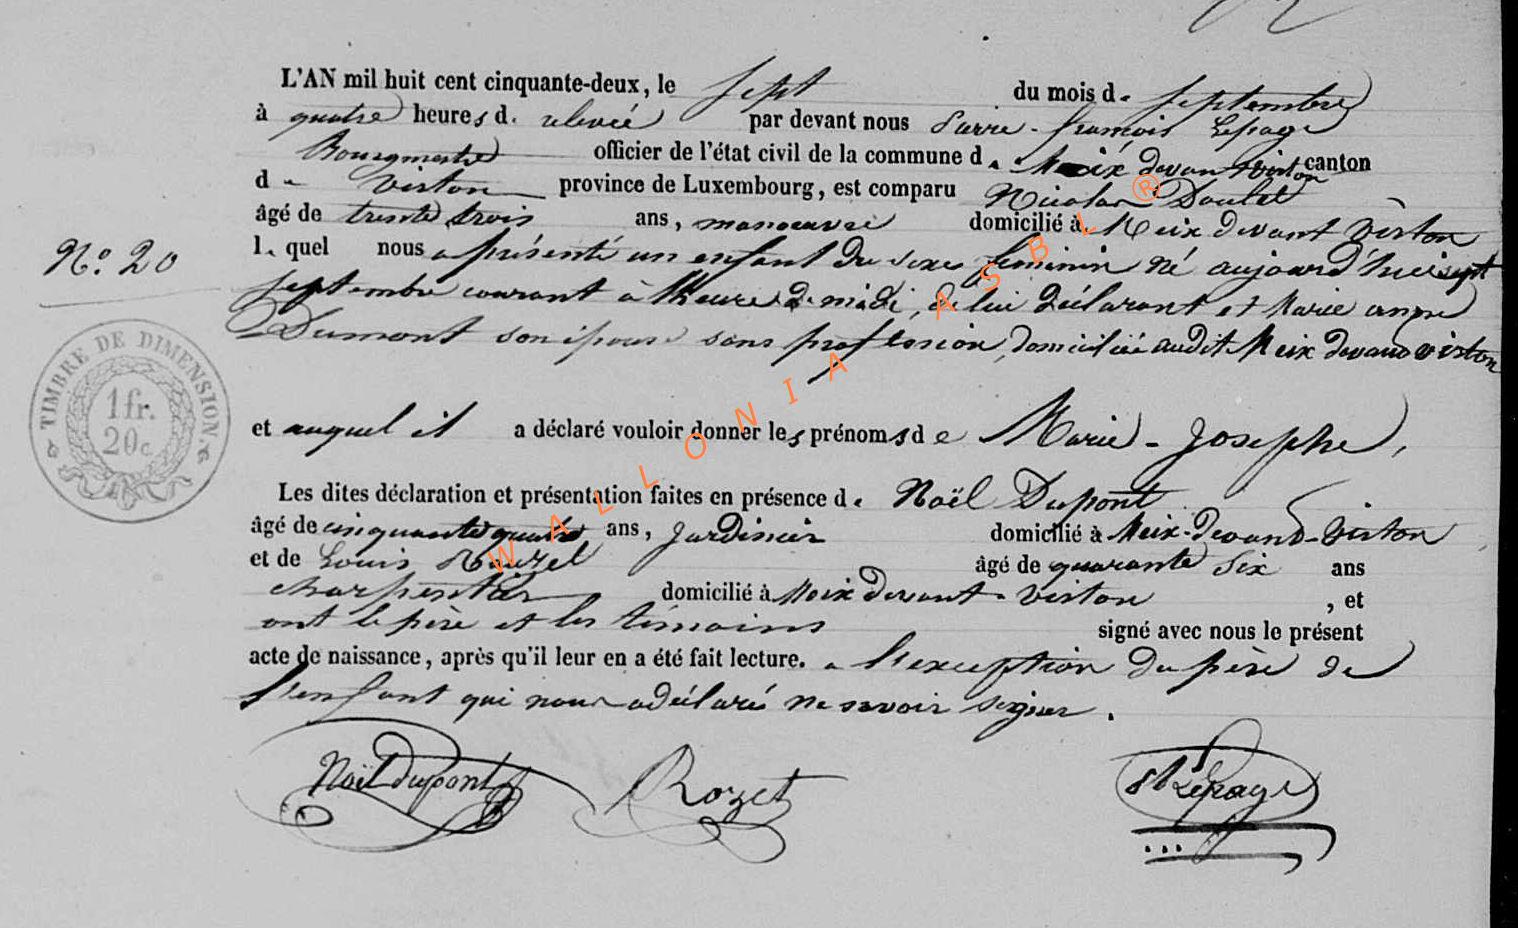 L'AN mil huit cent cinquante-deux, le sept du mois de septembre
à quatre heures de relevée par devant nous Pierre-françois Lepage
Bourgmestre officier de l'état civil de la commune de Meix devant Virton canton
de Virton province de Luxembourg, est comparu Nicolas
âgé de trente trois ans, manoeuvre domicilié à Meix devant Virton
N° 20
lequel nous a présenté un enfant du sexe féminin né aujourd'hui sept
septembre courant à l'heure de midi, de lui déclarant et Marie anne
Dumont son épouse sans profession, domiciliée audit Meix devant virton
TIMBRE DE DIMENSION.
1 fr.
20 c.
et auquel il a déclaré vouloir donner les prénoms de Marie-Josephe,
Les dites déclaration et présentation faites en présence de Noël Dupont
âgé de cinquante quatre ans, jardinier domicilié à Meix-devant-Virton
et de Louis Rozet âgé de quarante six ans
charpentier domicilié à Meix devant-virton, et
ont le père et les témoins signé avec nous le présent
acte de naissance, après qu'il leur en a été fait lecture. a l'exception du père de
l'enfant qui nous a déclaré ne savoir signer.
Noël dupont Rozet Lepage
WALLONIA ASBL ®